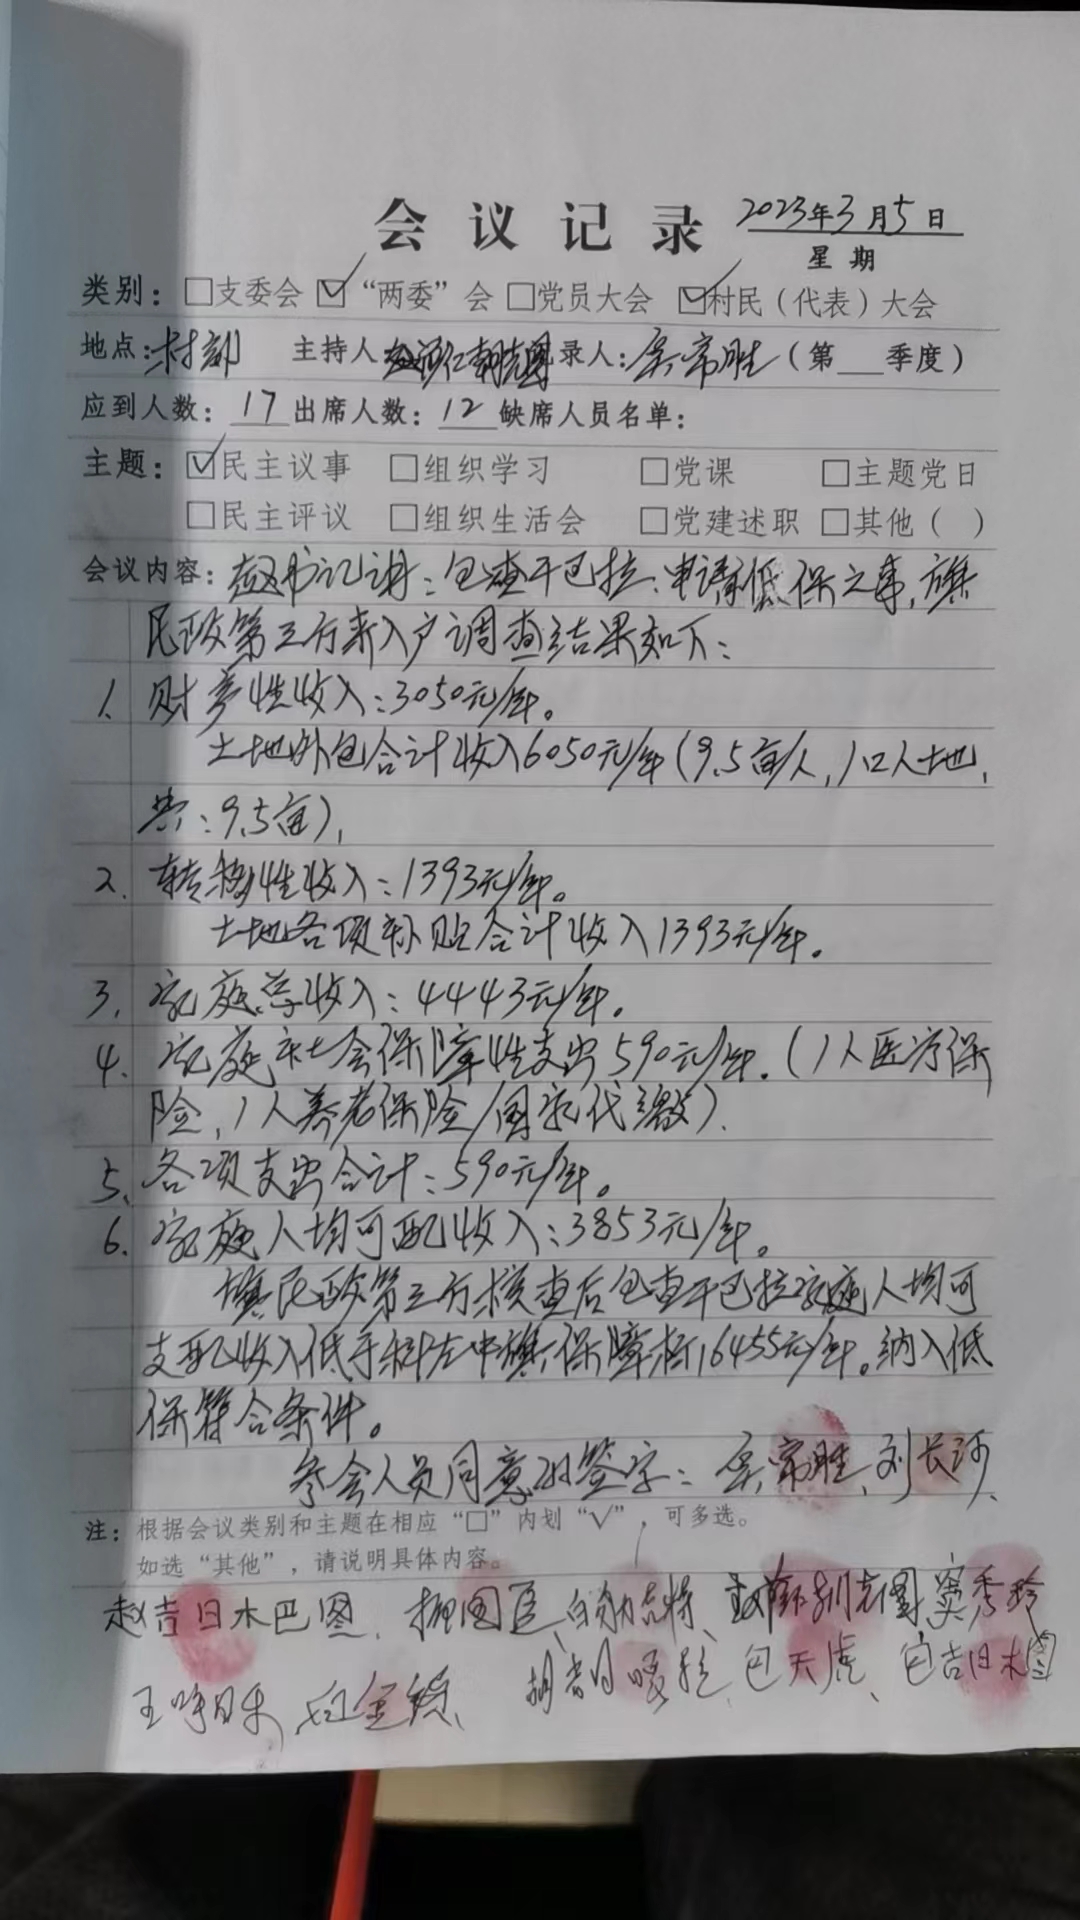 会议记录 2023年3月5日
星期
类别：□支委会 ☑“两委”会 □党员大会 ☑村民（代表）大会
地点：村部 主持人 录人：吴常胜（第 季度）
应到人数：17 出席人数：12 缺席人员名单：
主题：☑民主议事 □组织学习 □党课 □主题党日
□民主评议 □组织生活会 □党建述职 □其他（ ）
会议内容：赵书记讲：包查干巴拉、申请低保之事，旗
民政第三方来入户调查结果如下：
1. 财产性收入：3050元/年。
土地外包合计收入6050元/年（9.5亩/人，1口人土地，
共：9.5亩），
2. 转移性收入：1393元/年。
土地各项补贴合计收入1393元/年。
3. 家庭总收入：4443元/年。
4. 家庭社会保障性支出590元/年.（1人医疗保
险，1人养老保险/国家代缴）.
5. 各项支出合计：590元/年。
6. 家庭人均可配收入：3853元/年。
旗民政第三方核查后包查干巴拉家庭人均可
支配收入低于科左中旗保障标16455元/年。纳入低
保符合条件。
参会人员同意的签字：吴常胜、刘长河、
注：根据会议类别和主题在相应“□”内划“√”，可多选。
如选“其他”，请说明具体内容。
赵吉日木巴图、 窦秀玲
包天虎、包吉日木图